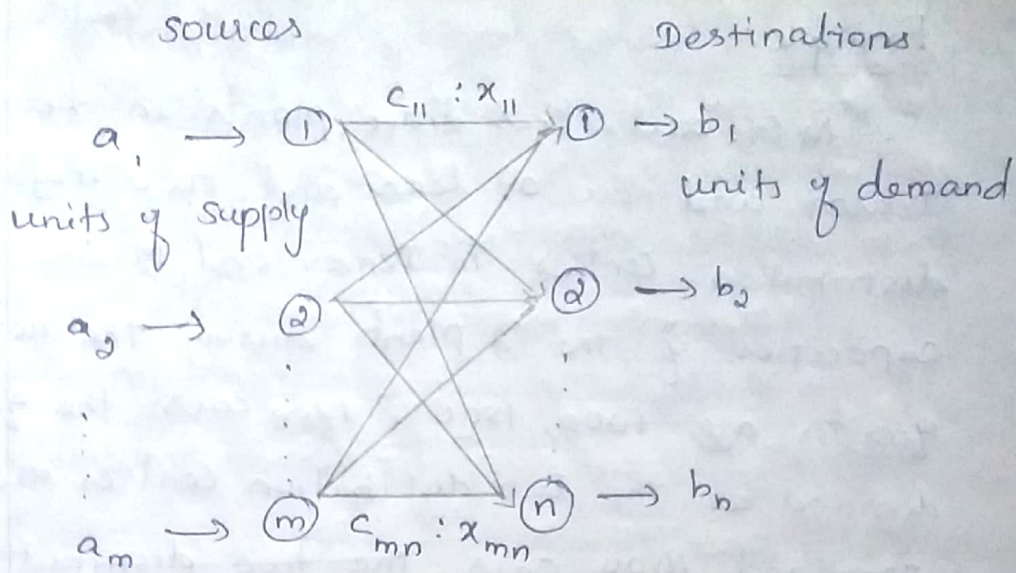 Sources Destinations
c₁₁ : x₁₁
a₁ → ① ① → b₁
units of supply units of demand
a₂ → ② ② → b₂
a_m → ⓜ c_mn : x_mn ⓝ → b_n